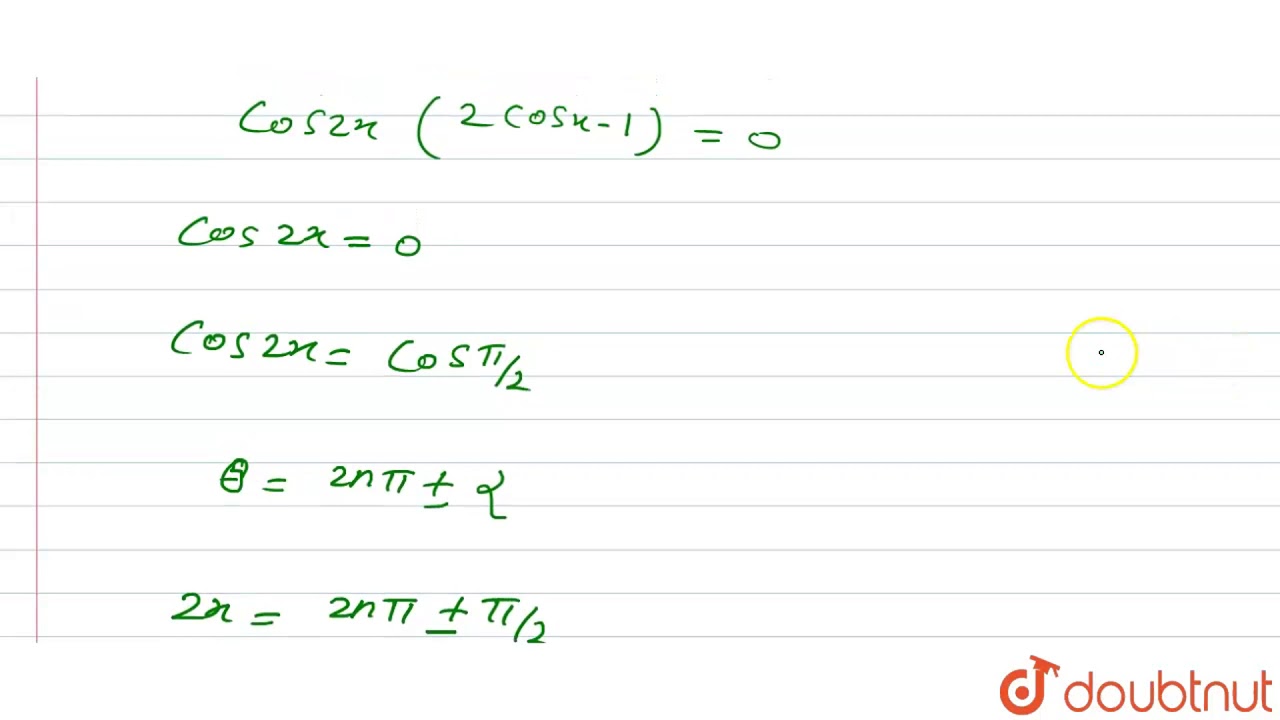 Cos2x (2cosx-1) = 0
Cos 2x = 0
Cos2x = Cosπ/2
θ = 2nπ ± α
2x = 2nπ ± π/2
doubtnut